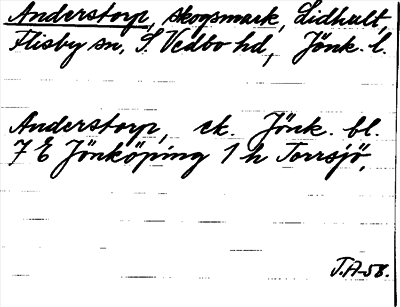 Anderstorp, skogsmark, Lidhult,
Flisby sn, S. Vedbo hd, Jönk. l.
Anderstorp, ek. Jönk. bl.
7 E Jönköping 1 h Torrsjö,
T.A-58.